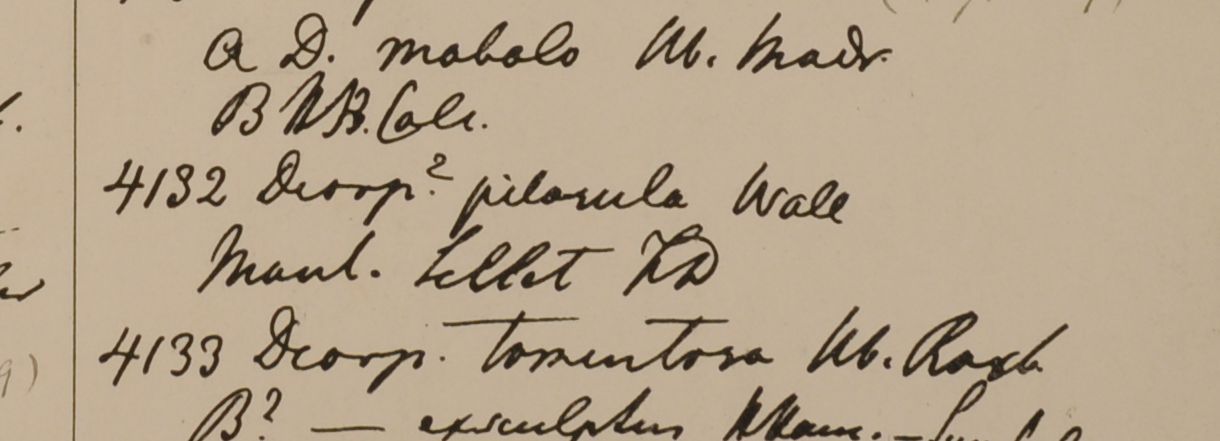 a D. mabolo Hb. Madr.
B HB. Calc.
4132 Diosp.? pilosula Wall
Mont. Sillet FD
4133 Diosp. tomentosa Hb. Roxb
B? — exsculptus HHam.